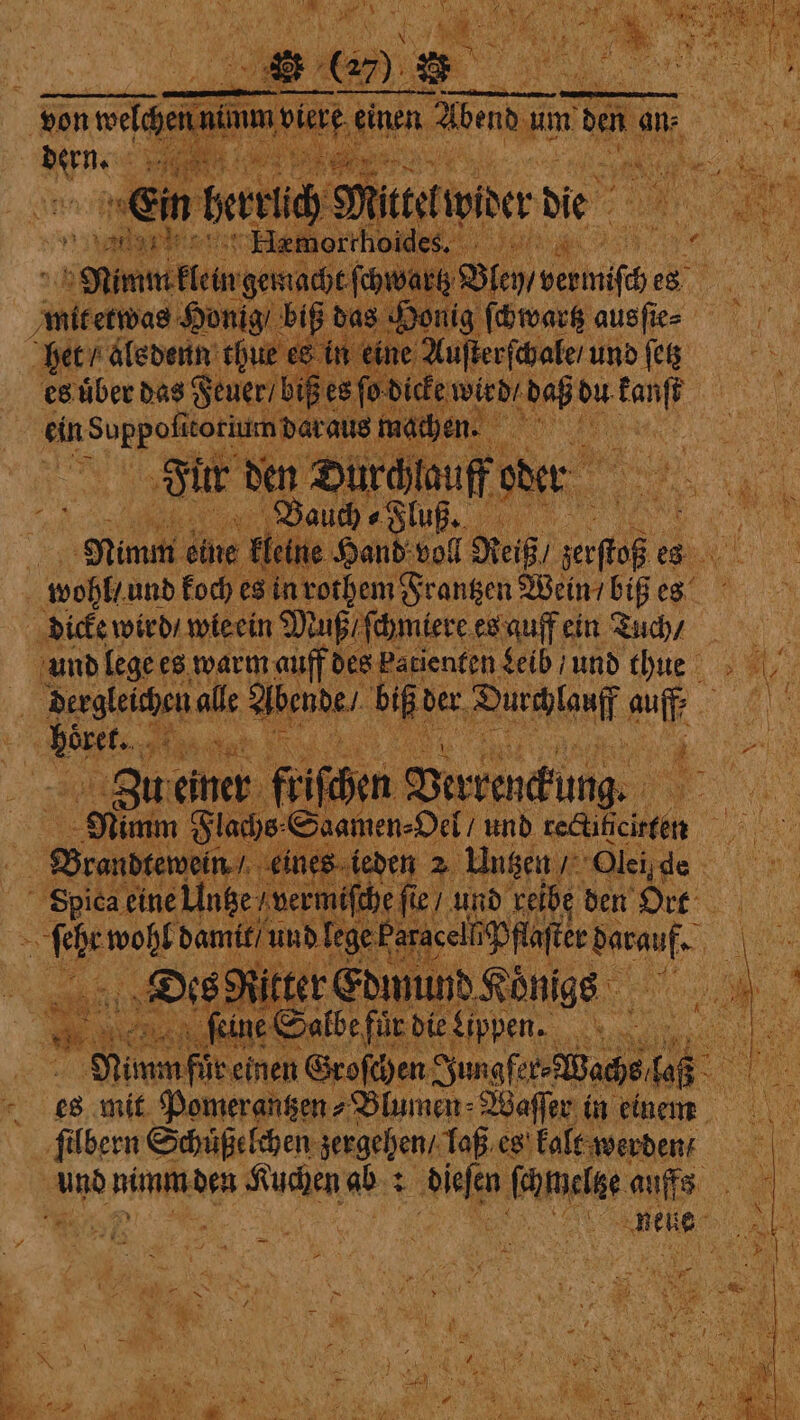 (27)
von welchen nimm viere einen Abend um den an⸗
dern.
Ein herrlich Mittel wider die
Hæmorrhoides.
Nimm klein gemacht ſchwartz Bley/ vermiſch es
mit etwas Honig/ biß das Honig ſchwartz ausſie⸗
het/ alsdenn thue es in eine Auſterſchale/ und ſetz
es uͤber das Feuer/ biß es ſo dicke wird/ daß du kanſt
ein Suppoſitorium daraus machen.
Fuͤr den Durchlauff oder
Bauch⸗Fluß.
Nimm eine kleine Hand voll Reiß/ zerſtoß es
wohl/ und koch es in rothem Frantzen Wein/ biß es
dicke wird/ wie ein Muß/ ſchmiere es auff ein Tuch/
und lege es warm auff des Patienten Leib/ und thue
dergleichen alle Abende/ biß der Durchlauff auff⸗
hoͤret.
Zu einer friſchen Verrenckung.
Nimm Flachs⸗Saamen⸗Oel/ und rectificirten
Brandtewein/ eines ieden 2 Untzen/ Olei, de
Spica eine Untze/ vermiſche ſie/ und reibe den Ort
ſehr wohl damit/ und lege Paracelſi Pflaſter darauf.
Des Ritter Edmund Koͤnigs
ſeine Salbe fuͤr die Lippen.
Nimm fuͤr einen Groſchen Jungfer⸗Wachs/ laß
es mit Pomerantzen⸗Blumen⸗Waſſer in einem
ſilbern Schuͤßelchen zergehen/ laß es kalt werden/
und nimm den Kuchen ab : dieſen ſchmeltze auffs
neue